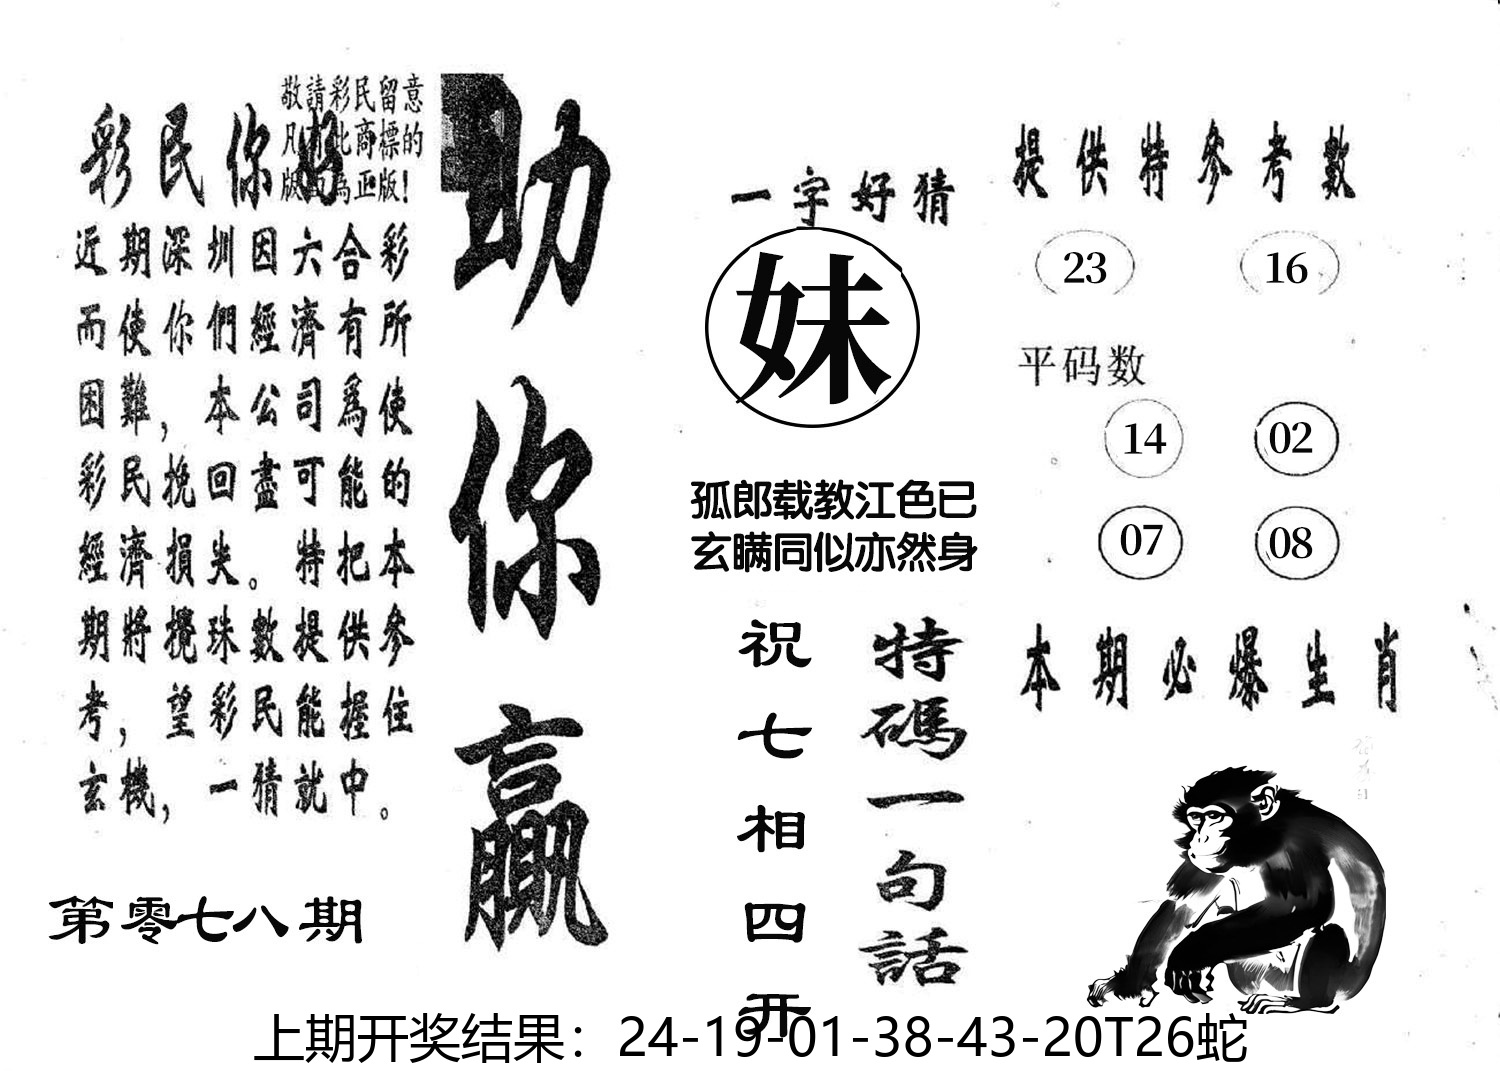 敬請彩民留意
凡有此商標的
版面為正版！
彩民你好
近期深圳因六合彩
而使你們經濟有所
困難，本公司爲使
彩民挽回盡可能的
經濟損失。特把本
期將攪珠數提供參
考，望彩民能握住
玄機，一猜就中。
第零七八期
助你贏
一字好猜
妹
孤郎载教江色已
玄瞒同似亦然身
特碼一句話
祝七相四开
提供特參考數
23 16
平码数
14 02
07 08
本期必爆生肖
上期开奖结果：24-19-01-38-43-20T26蛇